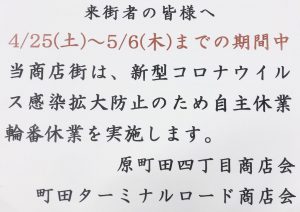 来街者の皆様へ
4/25(土)～5/6(木)までの期間中
当商店街は、新型コロナウイル
ス感染拡大防止のため自主休業
輪番休業を実施します。
原町田四丁目商店会
町田ターミナルロード商店会